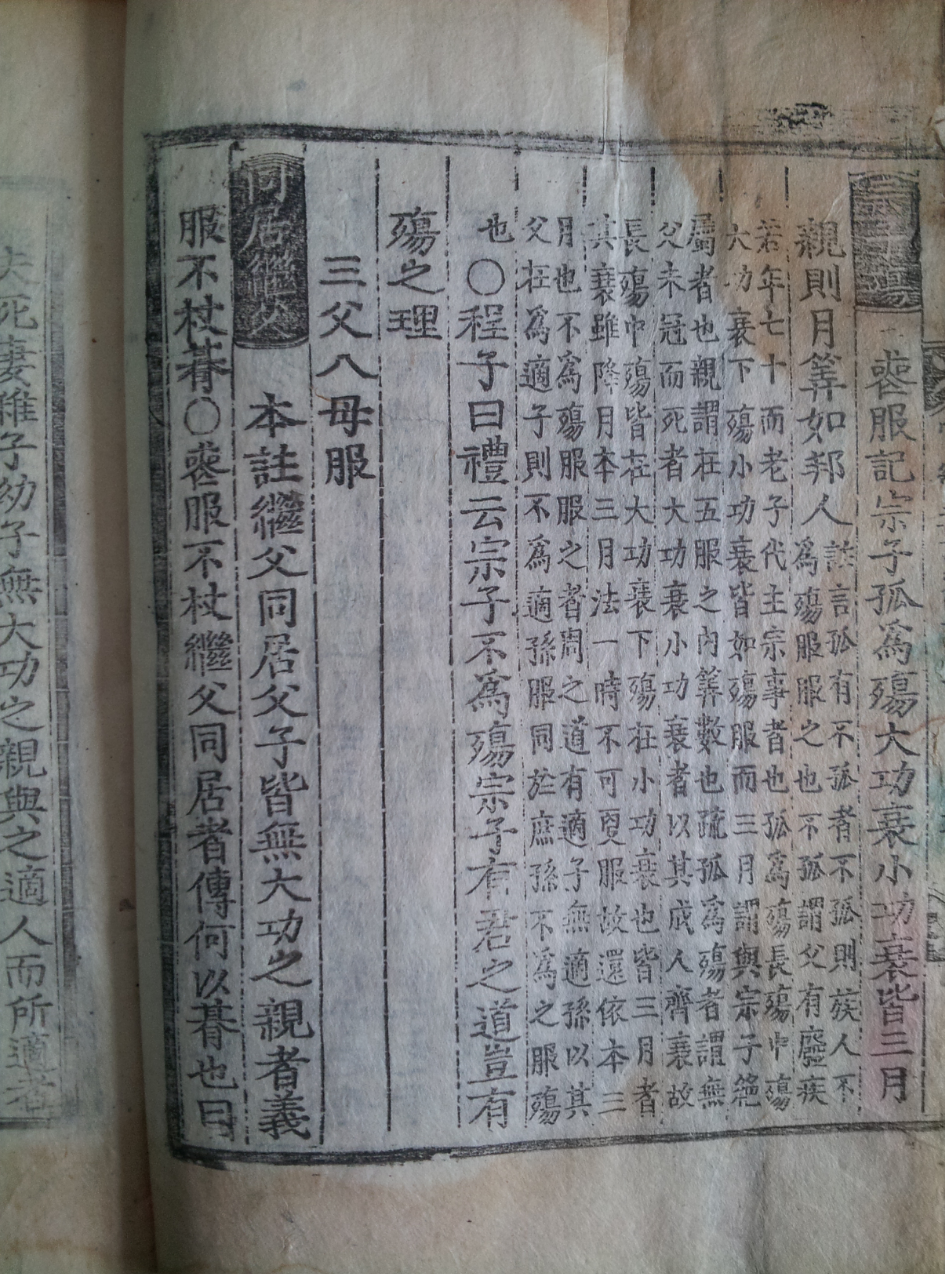 宗子殤 喪服記宗子孤爲殤大功衰小功衰皆三月
親則月筭如邦人
註言孤有不孤者不孤則族人不
爲殤服服之也不孤謂父有廢疾
若年七十而老子代主宗事者也孤爲殤長殤中殤
大功衰下殤小功衰皆如殤服而三月謂與宗子絶
屬者也親謂在五服之內筭數也䟽孤爲殤者謂無
父未冠而死者大功衰小功衰者以其成人齊衰故
長殤中殤皆在大功衰下殤在小功衰也皆三月者
其衰雖降月本三月法一時不可更服故還依本三
月也不爲殤服服之者周之道有適子無適孫以其
父在爲適子則不爲適孫服同於庶孫不爲之服殤
也〇程子曰禮云宗子不爲殤宗子有君之道豈有
殤之理
三父八母服
同居繼父 本註繼父同居父子皆無大功之親者義
服不杖朞〇喪服不杖繼父同居者傳何以朞也曰
夫死妻穉子幼子無大功之親與之適人而所適者